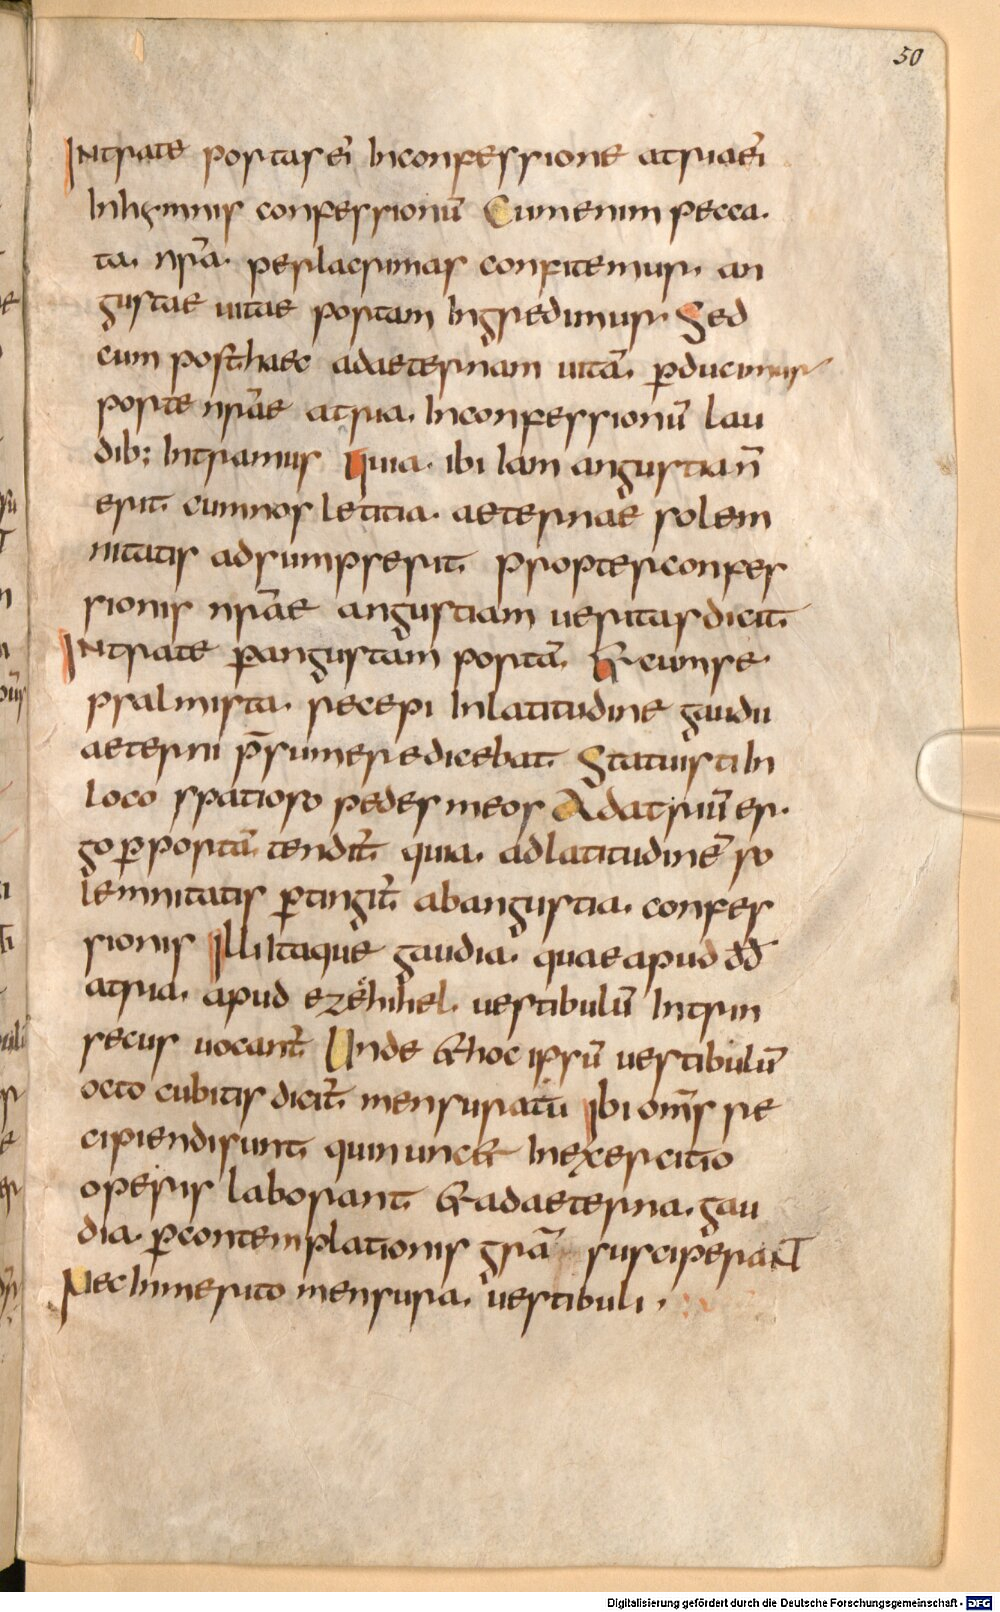 50
Intrate portas eī In confessione atria eī
In hymnis confessionū Cum enim pecca
ta nr̄a per lacrimas confitemur, an
gustae uitae portam Ingredimur Sed
cum post haec ad aeternam uitā p̱ducimur
portae nr̄ae atria In confessionū lau
dib; Intramus Quia ibi Iam angustia n̄
erit cum nos letitia aeternae solem
nitatis adsumpserit propter confes
sionis nr̄ae angustiam ueritas dicit
Intrate p̱ angustam portā & cum se
psalmista recepi In latitudine gaudii
aeterni p̄sumere dicebat Statuisti In
loco spatioso pedes meos Ad atriū er
go p̱ portā tendit̄ quia ad latitudinē so
lemnitatis p̱tingit̄ ab angustia confes
sionis Illi Itaque gaudia quae apud dd̄
atria apud ezehihel uestibulū Intrin
secus uocant̄ Unde & hoc ipsū uestibulū
octo cubitis dicit̄ mensuratū Ibi om̄s re
cipiendi sunt qui nunc & In exercitio
operis laborant & ad aeterna gau
dia p̱ contemplationis grā suscipera NT
Nec Inmerito mensura uestibuli,
Digitalisierung gefördert durch die Deutsche Forschungsgemeinschaft - DFG